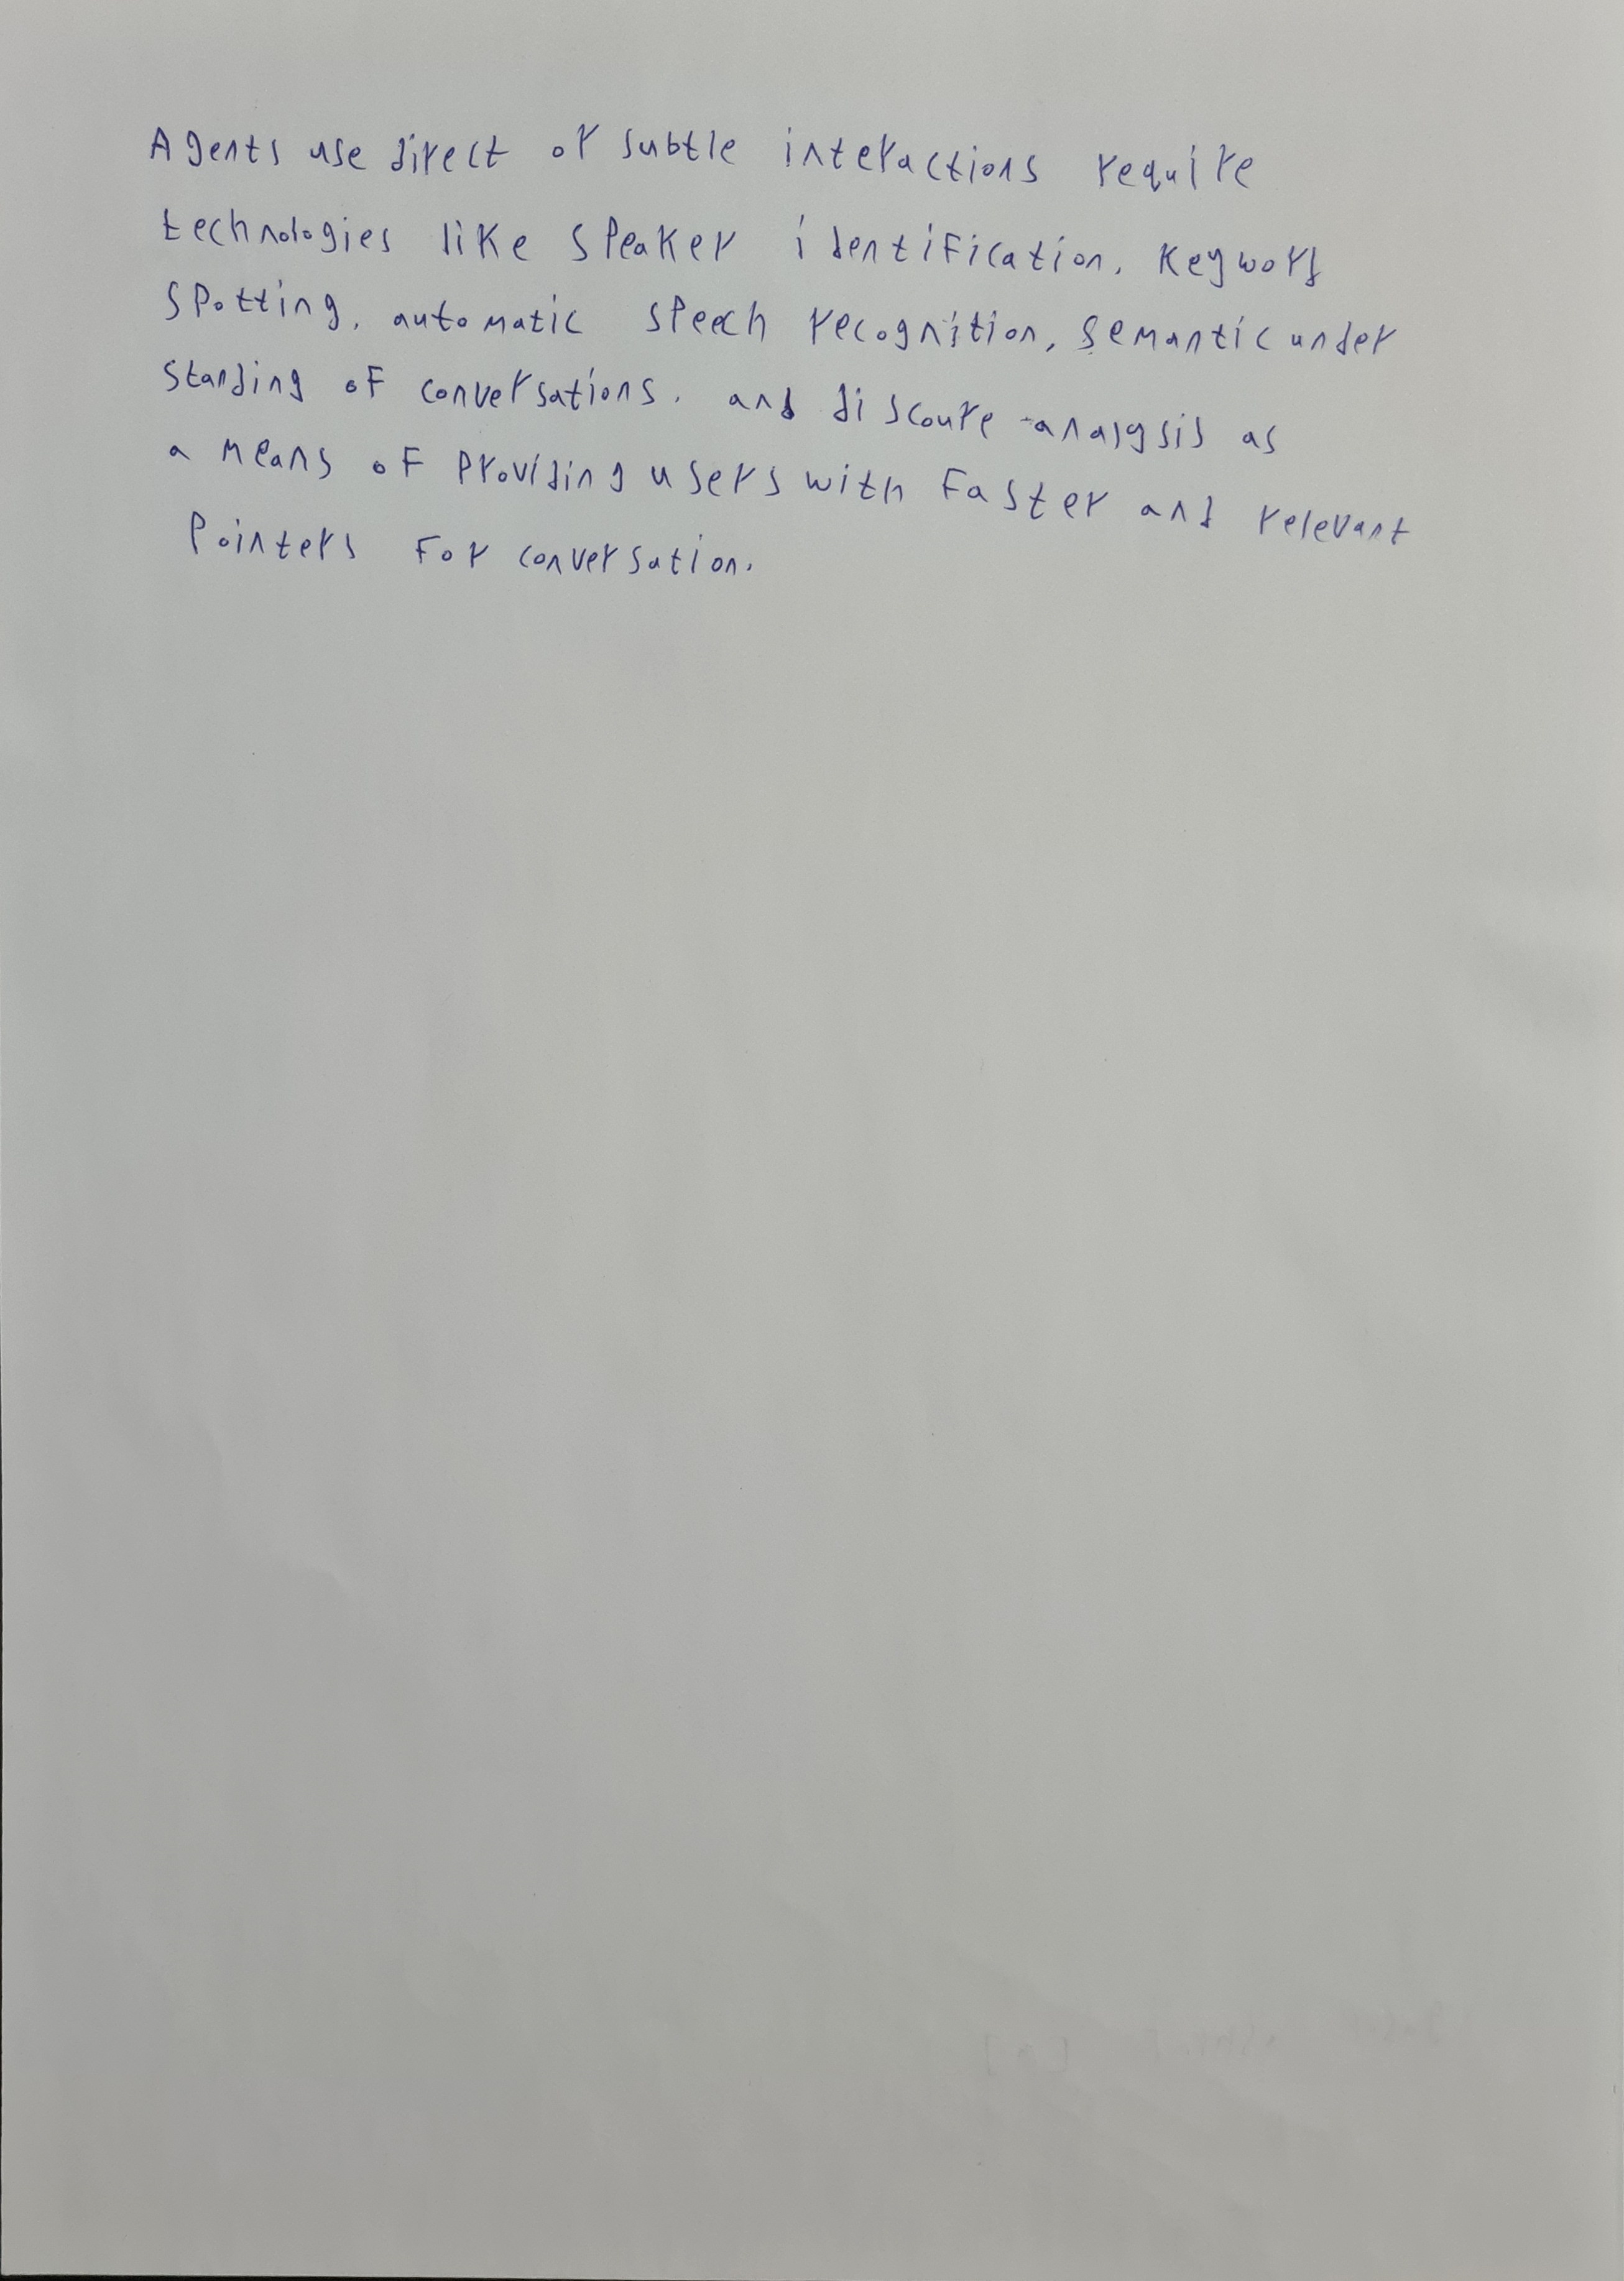 Agents use direct or subtle interactions require
technologies like speaker identification, keyword
spotting, automatic speech recognition, semantic under
standing of conversations, and discoure analysis as
a means of providing users with faster and relevant
pointers for conversation.